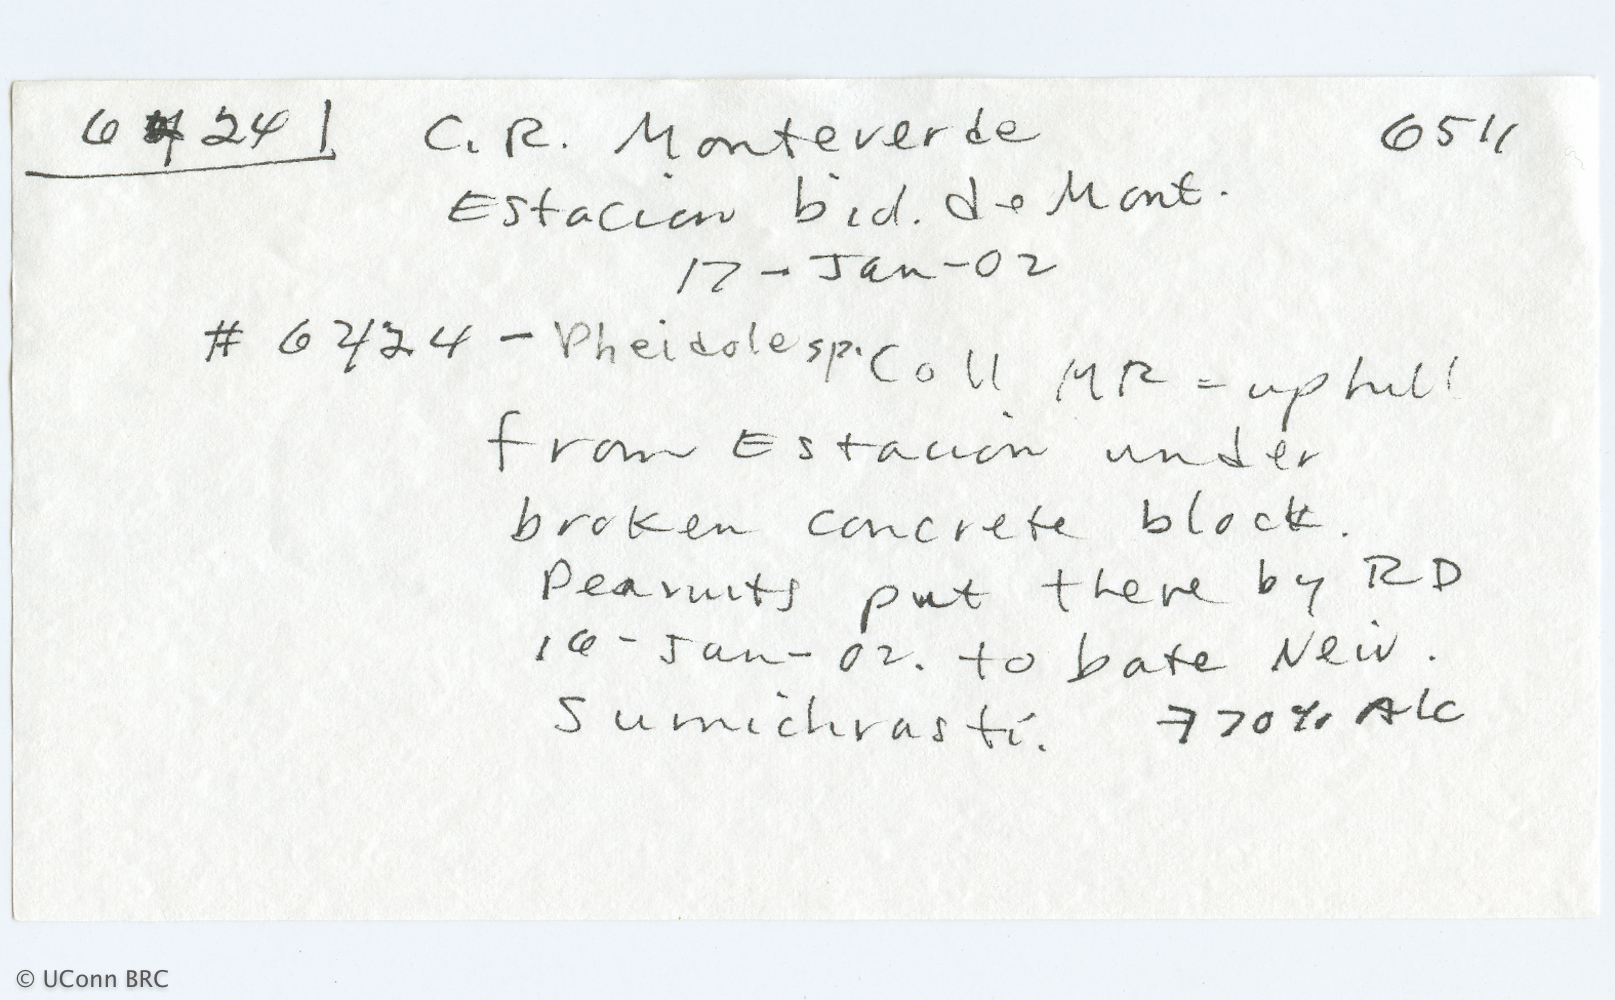 6424 C.R. Monteverde 6511
Estacion bid. de Mont.
17-Jan-02
# 6424 - Pheidole sp. Coll MR = uphill
from Estacion under
broken concrete block.
Peanuts put there by RD
16-Jan-02. to bate Neiv.
Sumichrasti. → 70% Alc
© UConn BRC